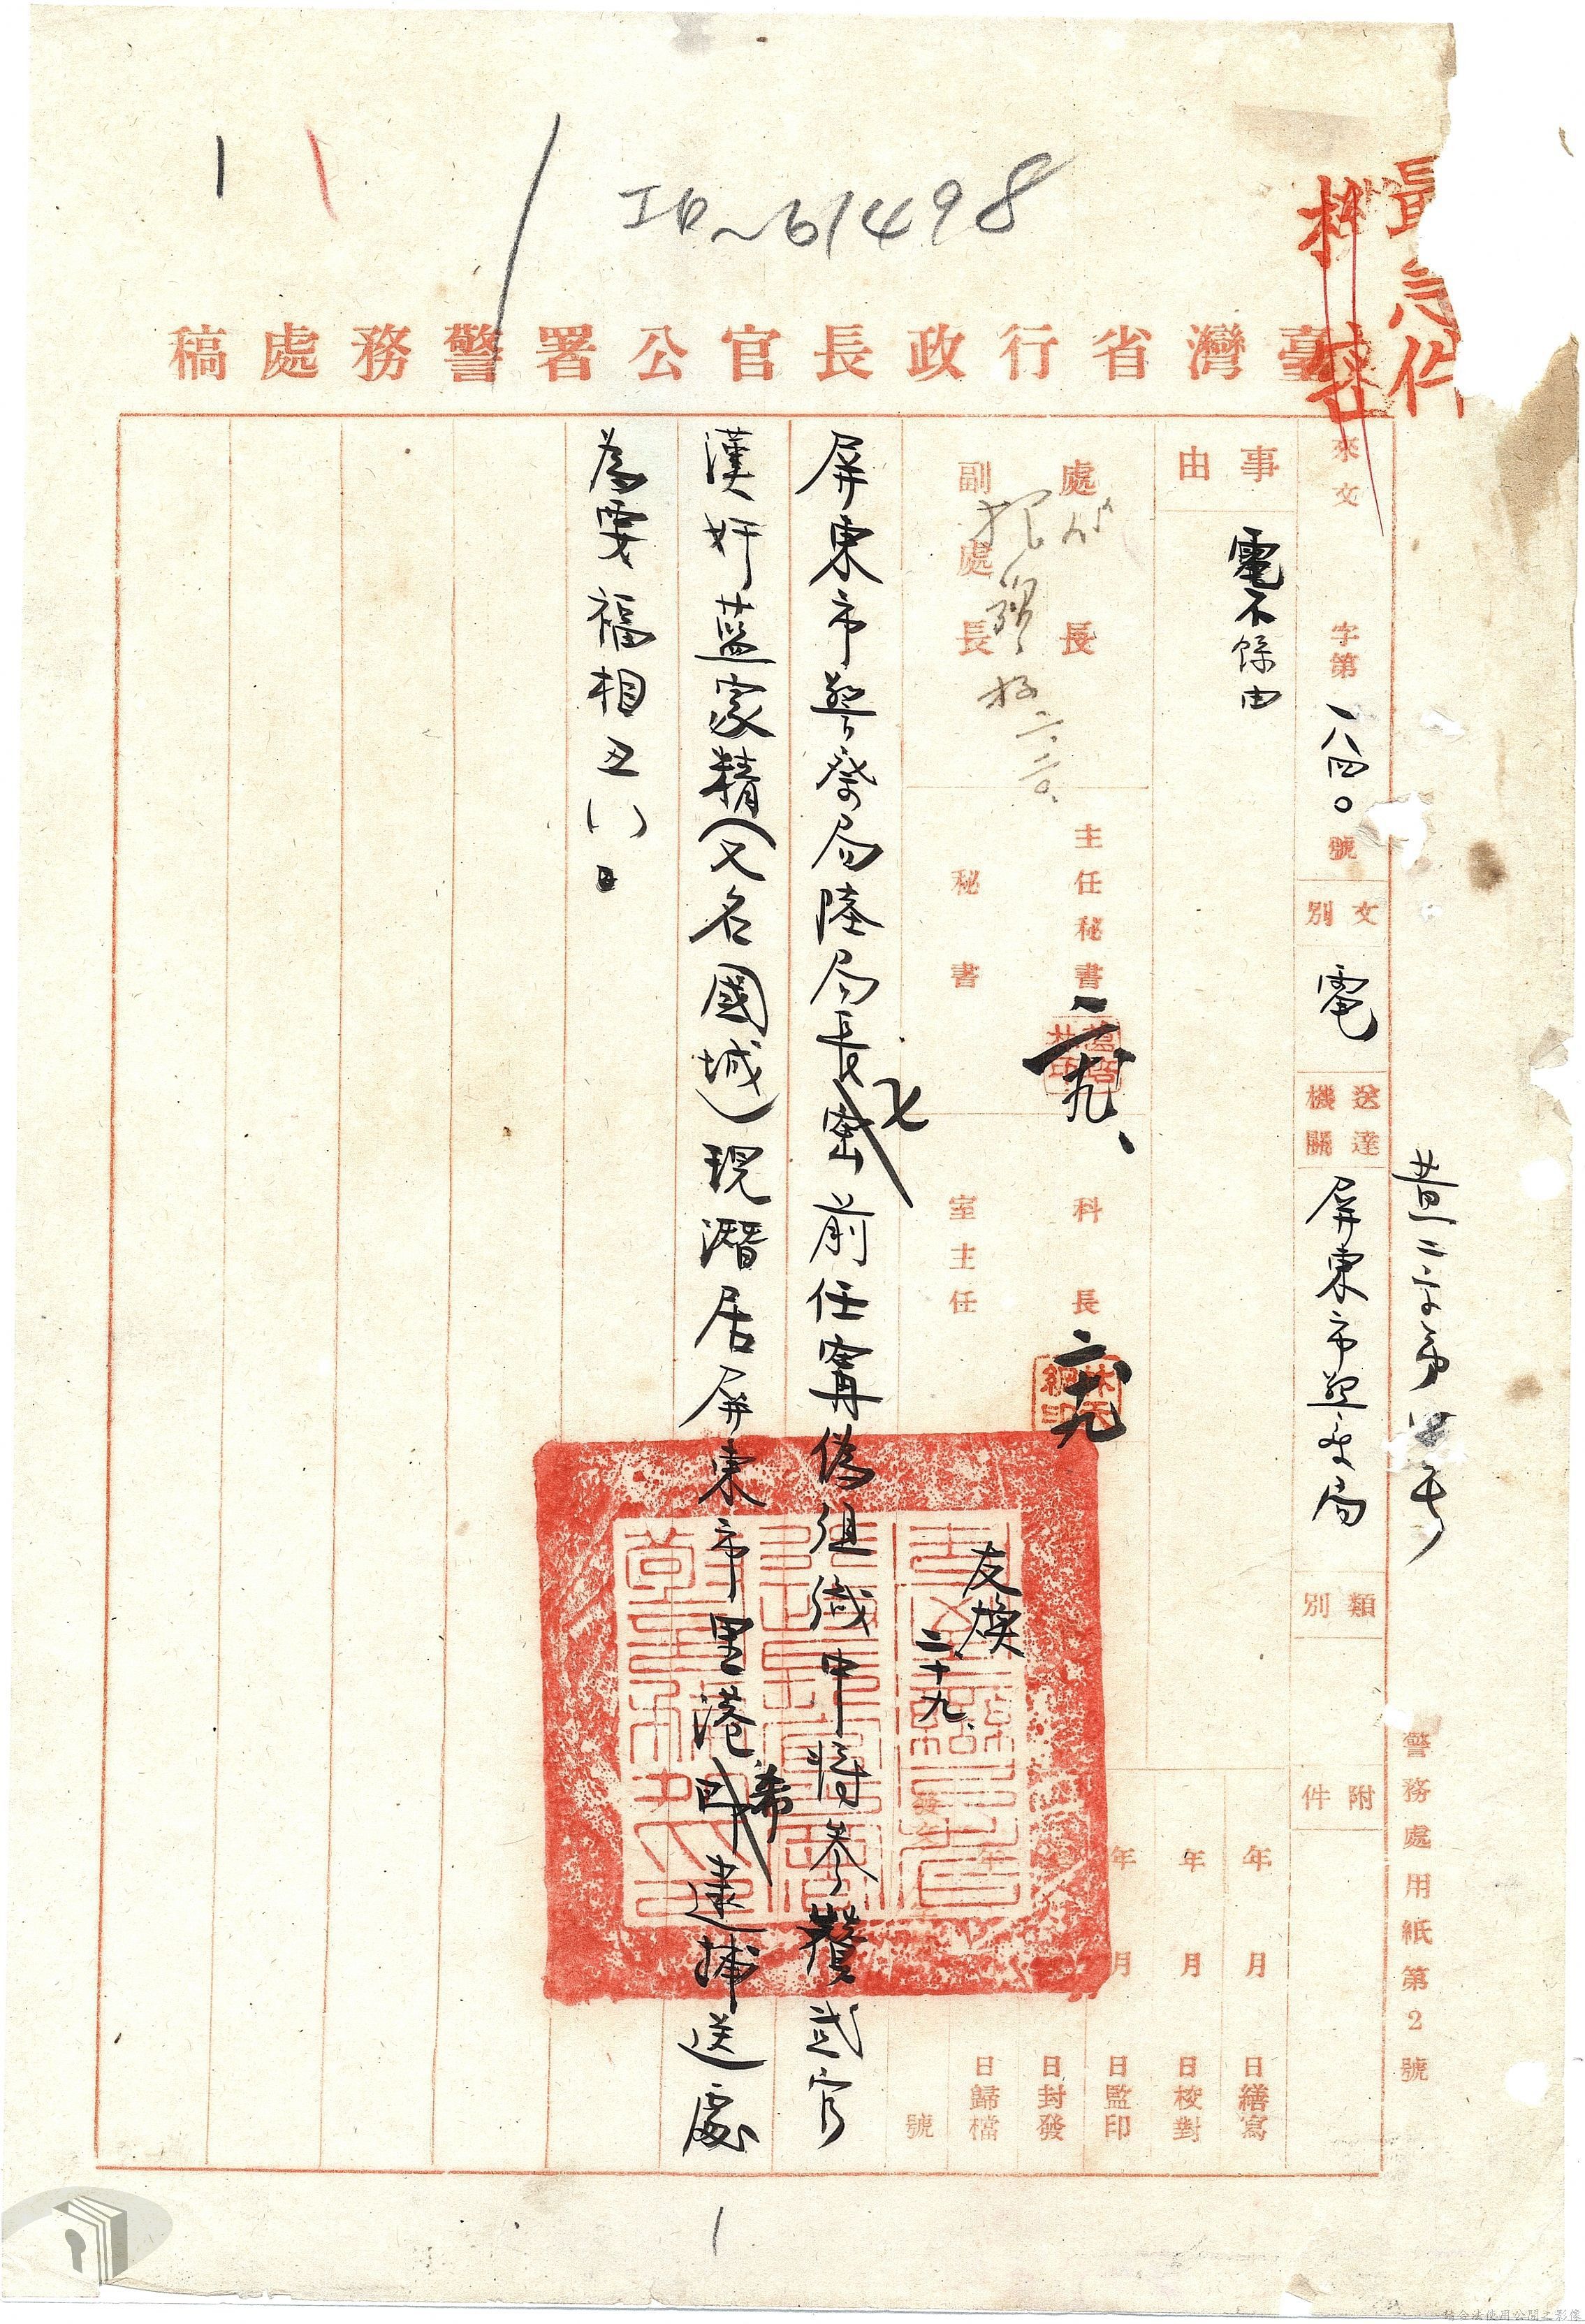 最急件
機密
臺灣省行政長官公署警務處稿
警務處用紙第2號
來文 字第一八四〇號
文別 電
送達機關 屏東市警察局
類別
附件
事由
電不錄由
年 月 日繕寫
年 月 日校對
年 月 日監印
日封發
年 日歸檔
號
處長
副處長
主任秘書
秘書
科長
室主任
友換
二十九、
屏東市警察局陸局長密前任寗偽組織中將參贊武官
漢奸藍家精(又名國城)現潛居屏東市里港希逮捕送處
為要福相丑()日
61498